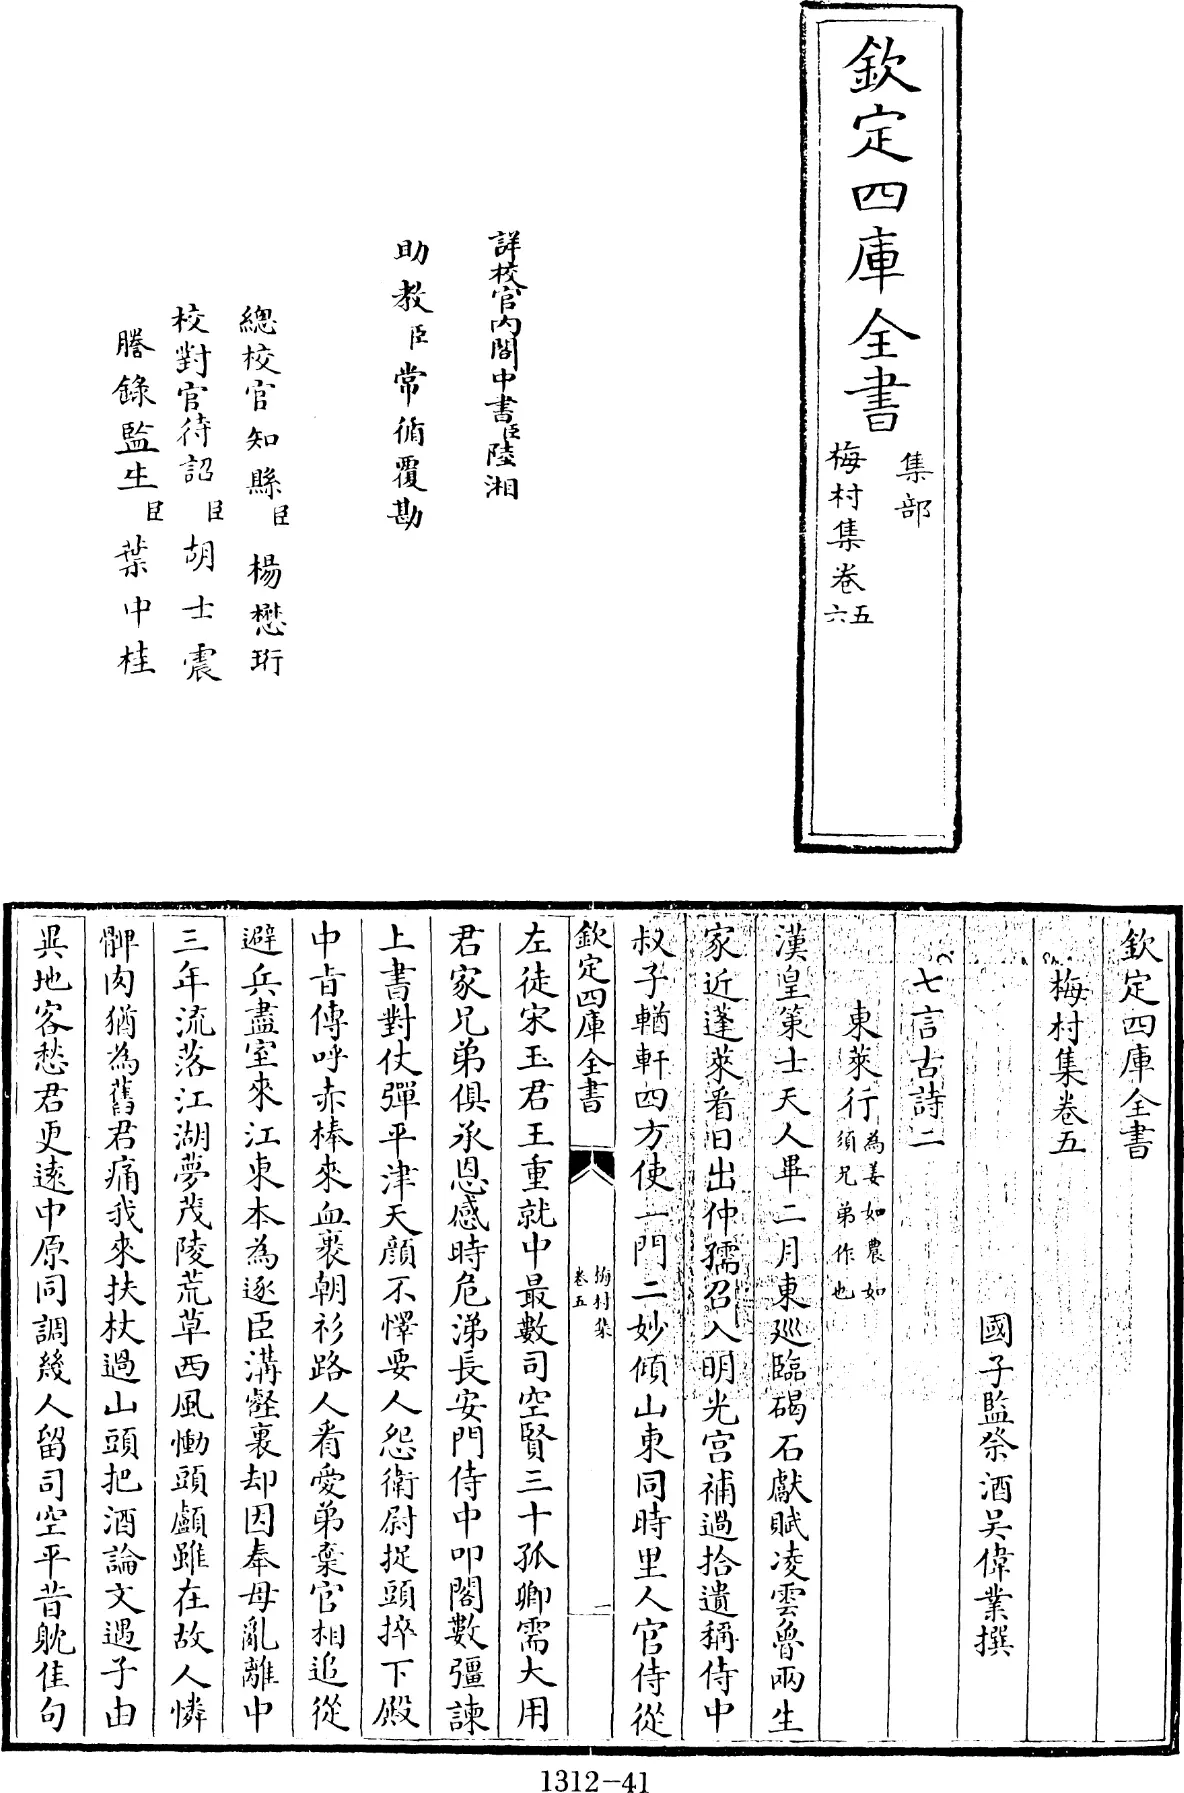 欽定四庫全書
集部
梅村集卷五
六
詳校官內閣中書臣陸湘
助教臣常循覆勘
總校官知縣臣楊懋珩
校對官待詔臣胡士震
謄錄監生臣葉中桂
欽定四庫全書
梅村集卷五
國子監祭酒吳偉業撰
七言古詩二
東萊行為姜如農如
須兄弟作也
漢皇策士天人畢二月東廵臨碣石獻賦凌雲魯兩生
家近蓬萊看日出仲孺召入明光宮補過拾遺稱侍中
叔子輶軒四方使一門二妙傾山東同時里人官侍從
欽定四庫全書
梅村集
卷五
一
左徒宋玉君王重就中最數司空賢三十孤卿需大用
君家兄弟俱承恩感時危涕長安門侍中叩閤數彊諫
上書對仗彈平津天顔不懌要人怨衛尉捉頭捽下殿
中旨傳呼赤棒來血裹朝衫路人看愛弟棄官相追從
避兵盡室來江東本為逐臣溝壑裏却因奉母亂離中
三年流落江湖夢茂陵荒草西風慟頭顱雖在故人憐
髀肉猶為舊君痛我來扶杖過山頭把酒論文遇子由
異地客愁君更遠中原同調幾人留司空平昔躭佳句
1312-41